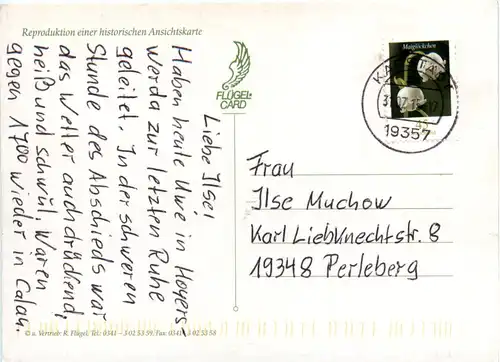 Reproduktion einer historischen Ansichtskarte
Liebe Ilse!
Haben heute Uwe in Hoyers,
werda zur letzten Ruhe
geleitet. In der schweren
Stunde des Abschieds war
das Wetter auch drückend,
heiß und schwül. Waren
gegen 17⁰⁰ wieder in Calau.
FLÜGEL-
CARD
Maiglöckchen
45
19357
Frau
Ilse Muchow
Karl Liebknechtstr. 8
19348 Perleberg
© u. Vertrieb: R. Flügel, Tel.: 0341 - 3 02 53 59, Fax: 0341 - 3 02 53 58